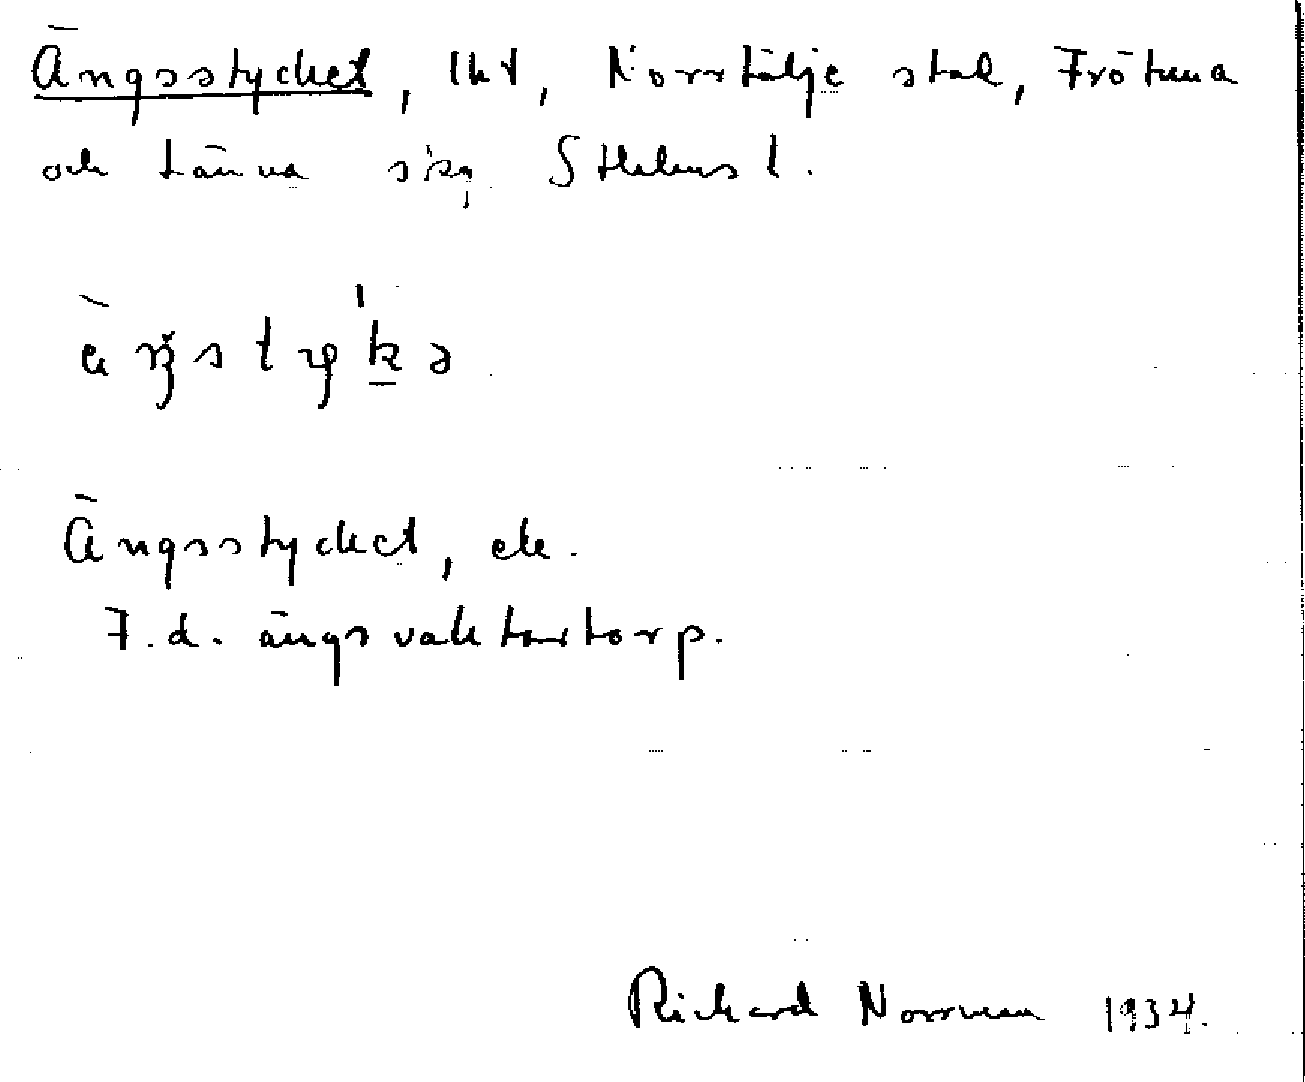 Ängsstycket, lht, Norrtälje stad, Frötuna
och Länna skg Sthlms l.
Ängsstycket, ete.
F.d. ängsvaktartorp.
Richard Norrman 1934.